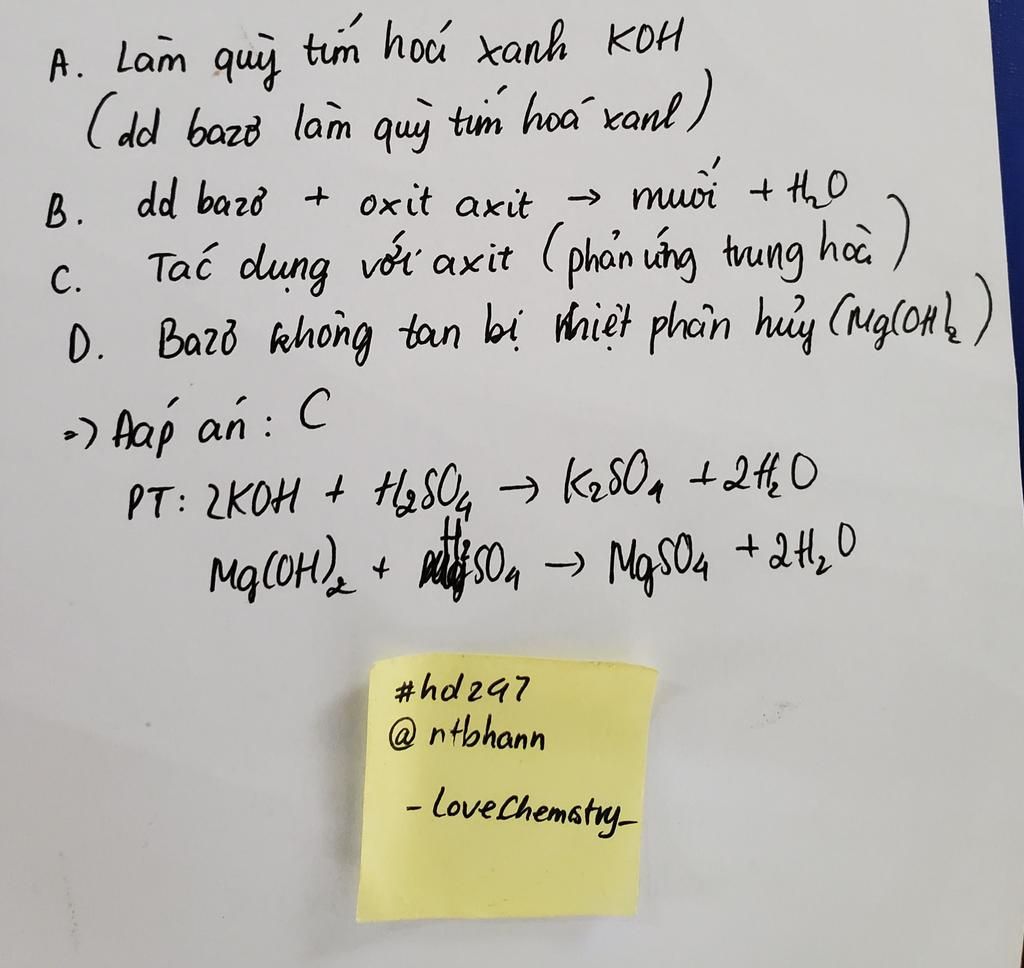 A. Làm quỳ tím hoá xanh KOH
(dd bazơ làm quỳ tím hoá xanh)
B. dd bazơ + oxit axit → muối + H₂O
C. Tác dụng với axit (phản ứng trung hoà)
D. Bazơ không tan bị nhiệt phân hủy (Mg(OH)₂)
=> Đáp án: C
PT: 2KOH + H₂SO₄ → K₂SO₄ + 2H₂O
Mg(OH)₂ + H₂SO₄ → MgSO₄ + 2H₂O
#hd247
@ntbhann
- LoveChemstry -